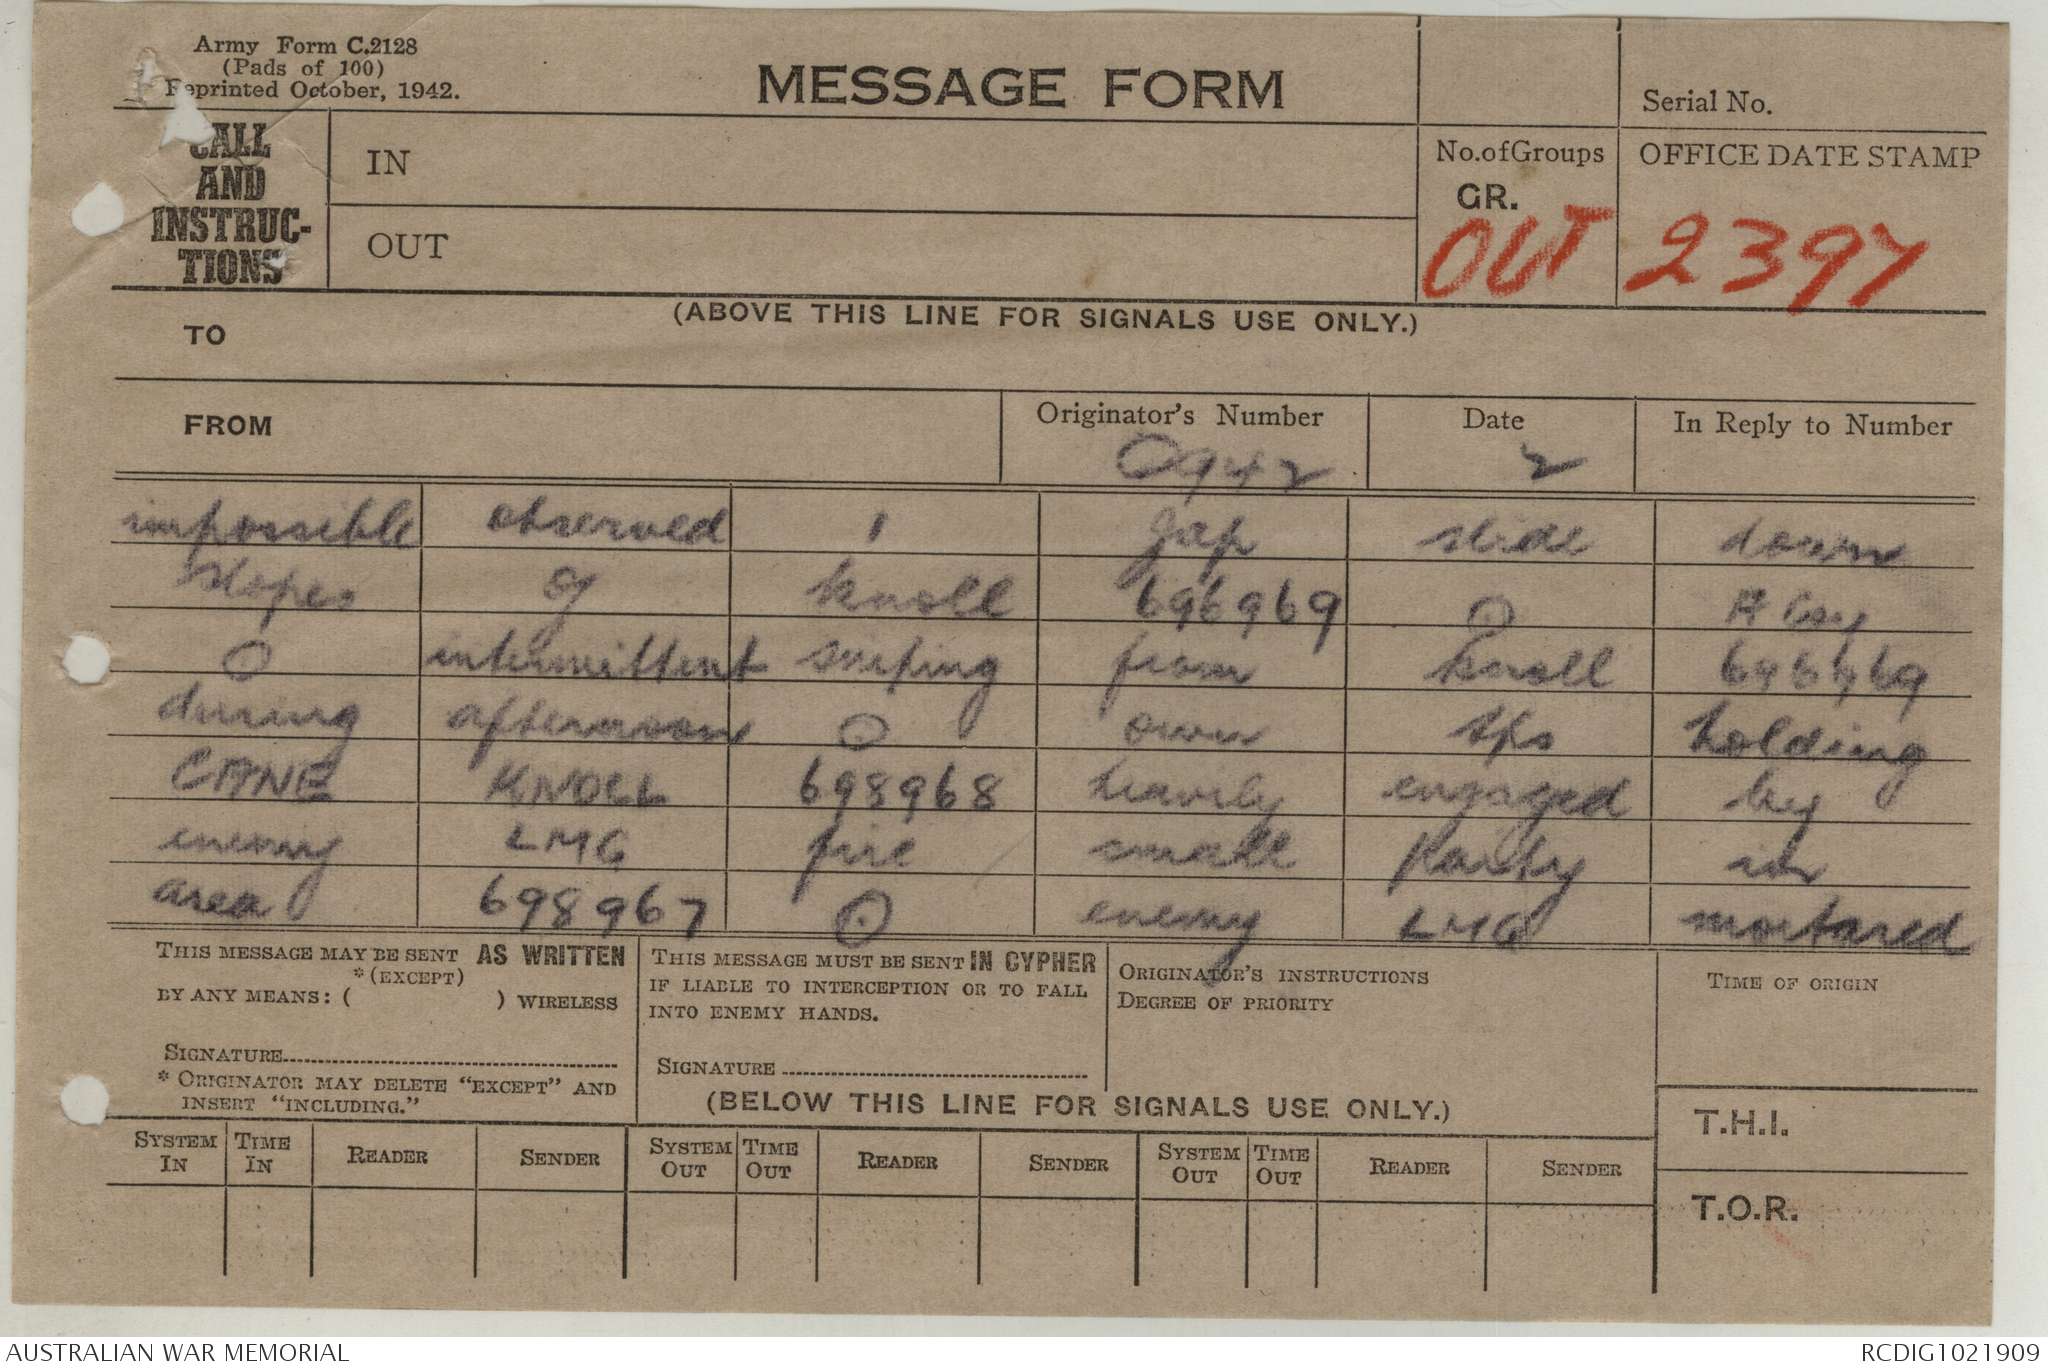 Army Form C.2128
(Pads of 100)
Reprinted October, 1942.
MESSAGE FORM
Serial No.
CALL AND INSTRUC-TIONS
IN
OUT
No. of Groups
GR.
OUT
OFFICE DATE STAMP
2397
(ABOVE THIS LINE FOR SIGNALS USE ONLY.)
TO
FROM
Originator's Number
0942
Date
2
In Reply to Number
impossible observed 1 Jap slide down
slopes of knoll 696969 O A Coy
O intermittent sniping from knoll 696969
during afternoon O own tps holding
CANE KNOLL 698968 heavily engaged by
enemy LMG fire small party in
area 698967 O enemy LMG mortared
THIS MESSAGE MAY BE SENT AS WRITTEN
*(EXCEPT)
BY ANY MEANS: ( ) WIRELESS
SIGNATURE
* ORIGINATOR MAY DELETE "EXCEPT" AND
INSERT "INCLUDING."
THIS MESSAGE MUST BE SENT IN CYPHER
IF LIABLE TO INTERCEPTION OR TO FALL
INTO ENEMY HANDS.
SIGNATURE
ORIGINATOR'S INSTRUCTIONS
DEGREE OF PRIORITY
TIME OF ORIGIN
(BELOW THIS LINE FOR SIGNALS USE ONLY.)
T.H.I.
SYSTEM IN TIME IN READER SENDER SYSTEM OUT TIME OUT READER SENDER SYSTEM OUT TIME OUT READER SENDER
T.O.R.
AUSTRALIAN WAR MEMORIAL
RCDIG1021909